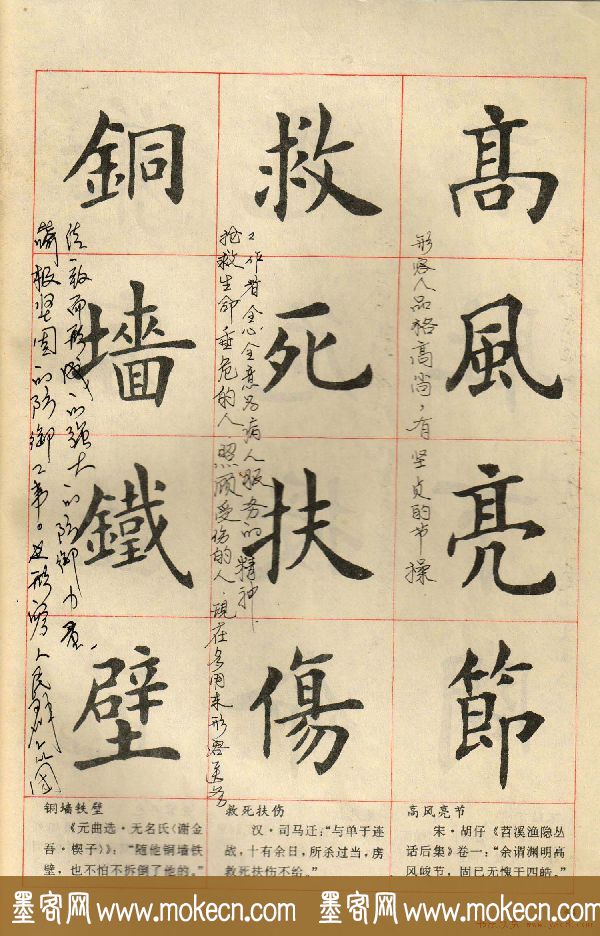 髙風亮節
形容人品格高尚,有坚贞的节操
救死扶傷
抢救生命垂危的人 照顾受伤的人.现在多用来形容医务
工作者全心全意为病人服务的精神.
銅墻鐵壁
喻极坚固的防御工事。也形容人民群众团
结一致而形成的强大的防御力量.
高风亮节
宋·胡仔《苕溪渔隐丛
话后集》卷一:“余谓渊明高
风峻节,固已无愧于四皓。”
救死扶伤
汉·司马迁:“与单于连
战,十有余日,所杀过当,虏
救死扶伤不给。”
铜墙铁壁
《元曲选·无名氏〈谢金
吾·楔子〉》:“随他铜墙铁
壁,也不怕不拆倒了他的。”
墨客网 www.mokecn.com 墨客网 www.mokecn.com